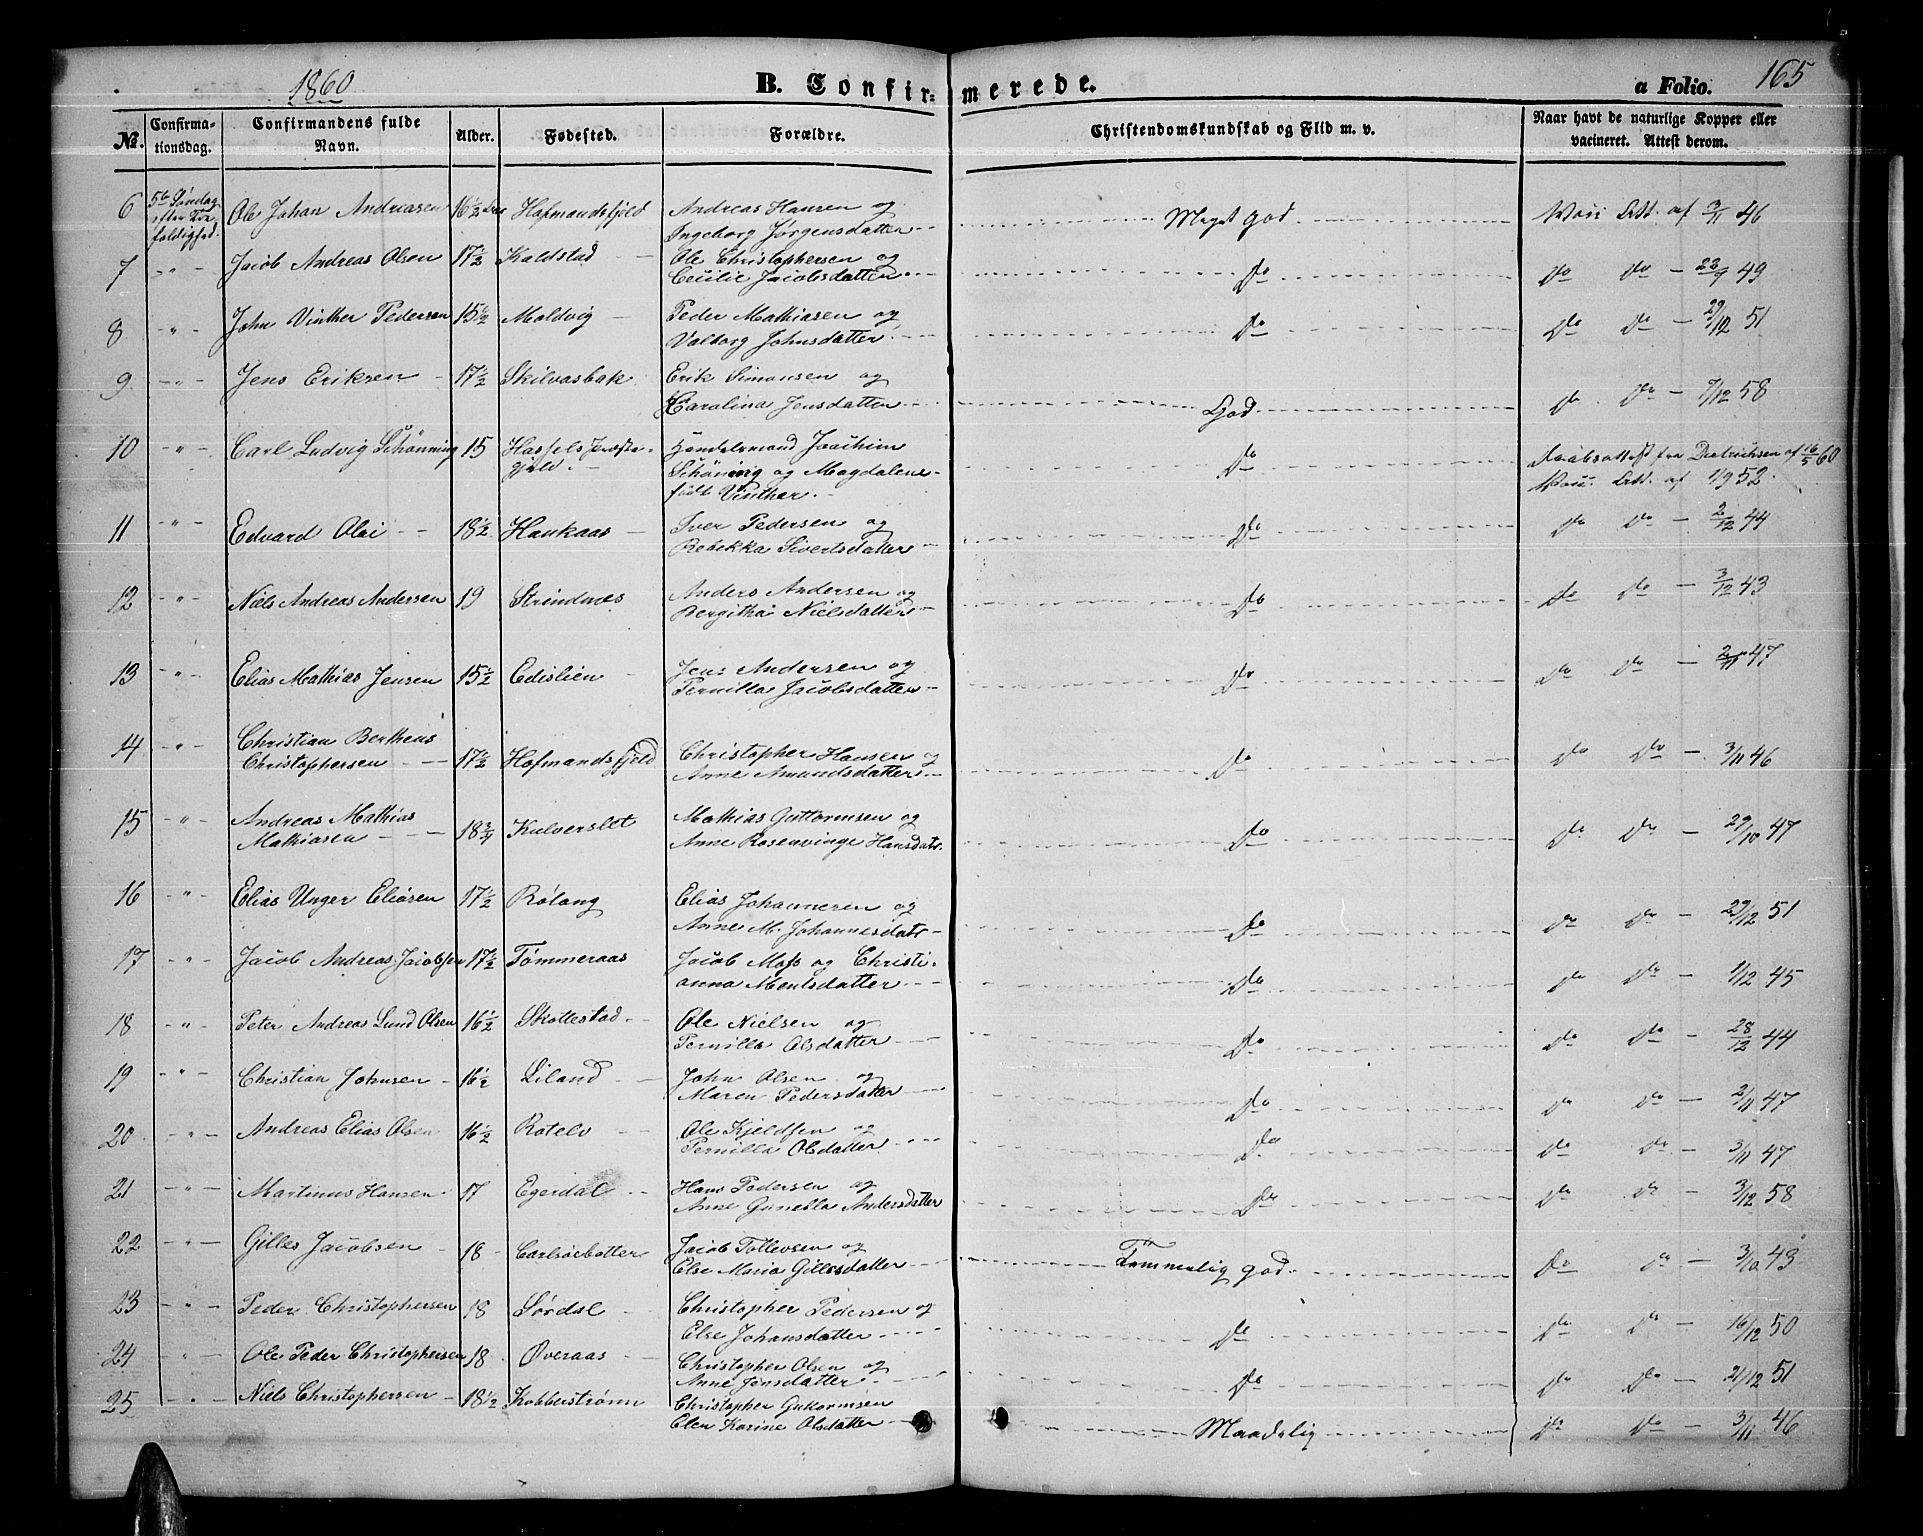 1860 B. Confirmerede. a Folio. 165
No. Confirmationsdag. Confirmandens fulde Navn. Alder. Fødested. Forældre. Christendomskundskab og Flid m. v. Naar havt de naturlige Kopper eller vacineret. Attest derom.
6 5te Søndag efter Trefoldighed. Ole Johan Andreasen 16 1/2 Hofmandsfjeld Andreas Hansen og Ingeborg Jørgensdatter Meget god Att. af 3/11 46
7 -"- Jacob Andreas Olsen 17 1/2 Kaldstad Ole Christophersen og Cecilie Jacobsdatter Do Do Do - 22/9 49
8 -"- John Vinther Pedersen 15 1/2 Moldvig Peder Mathiasen og Valborg Johnsdatter Do Do Do - 29/12 51
9 -"- Jens Eriksen 17 1/2 Skilvasbak Erik Simonsen og Carolina Jensdatter God Do Do - 7/12 58
10 -"- Carl Ludvig Schønning 15 Hassels Præstegjeld. Handelsmand Joachim Schøning og Magdalene født Vinther. Do Daabsattest fra Dietrichsen af 16/5 60 Att. af 1/9 52.
11 -"- Edvard Olai 18 1/2 Haukaas Iver Pedersen og Rebekka Sivertsdatter Do Do Do - 2/12 44
12 -"- Niels Andreas Andersen 19 Strindnæs Anders Andersen og Bergitha Nielsdatter Do Do Do - 3/12 43
13 -"- Elias Mathias Jensen 15 1/2 Edislien Jens Andersen og Pernilla Jacobsdatter Do Do Do - 2/11 47
14 -"- Christian Bertheus Christophersen 17 1/2 Hofmandsfjeld Christopher Hansen og Anne Amundsdatter Do Do Do - 3/11 46
15 -"- Andreas Mathias Mathiasen 18 3/4 Kulverslet Mathias Guttormsen og Anne Rosenvinge Hansdatr. Do Do Do - 29/10 47
16 -"- Elias Unger Eliasen 17 1/2 Røtang Elias Johannesen og Anne M. Johannesdatr Do Do Do - 29/12 51
17 -"- Jacob Andreas Jacobsen 17 1/2 Tømmeraas Jacob Mass og Christianna Mentsdatter Do Do Do - 1/12 45
18 -"- Peter Andreas Lund Olsen 16 1/2 Skottestad Ole Nielsen og Pernilla Olsdatter Do Do Do - 28/12 44
19 -"- Christian Johnsen 16 1/2 Liland John Olsen og Maren Pedersdatter Do Do Do - 2/11 47
20 -"- Andreas Elias Olsen 16 1/2 Rotelv Ole Kjeldsen og Pernilla Olsdatter Do Do Do - 3/11 47
21 -"- Martinus Hansen 17 Egerdal Hans Pedersen og Anne Gunelba Andersdatter Do Do Do - 3/12 58
22 -"- Gilles Jacobsen 18 Jacob Tollevsen og Else Maria Gillesdatter Temmelig god Do Do - 3/10 43
23 -"- Peder Christophersen 18 Sørdal Christopher Pedersen og Else Johansdatter Do Do Do - 16/12 50
24 -"- Ole Peder Christophersen 18 Øveraas Christopher Olsen og Anne Jensdatter Do Do Do - 2/12 51
25 -"- Niels Christophersen 18 1/2 Kobberstrømn Christopher Guttormsen Elen Karine Olsdatter Maadelig Do Do - 3/11 46